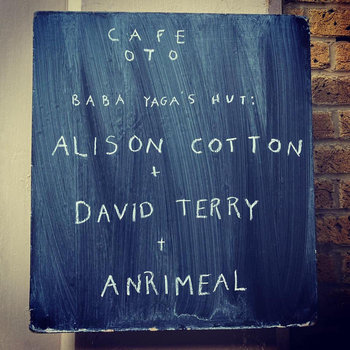 CAFE
OTO
BABA YAGA'S HUT:
ALISON COTTON
+
DAVID TERRY
+
ANRIMEAL